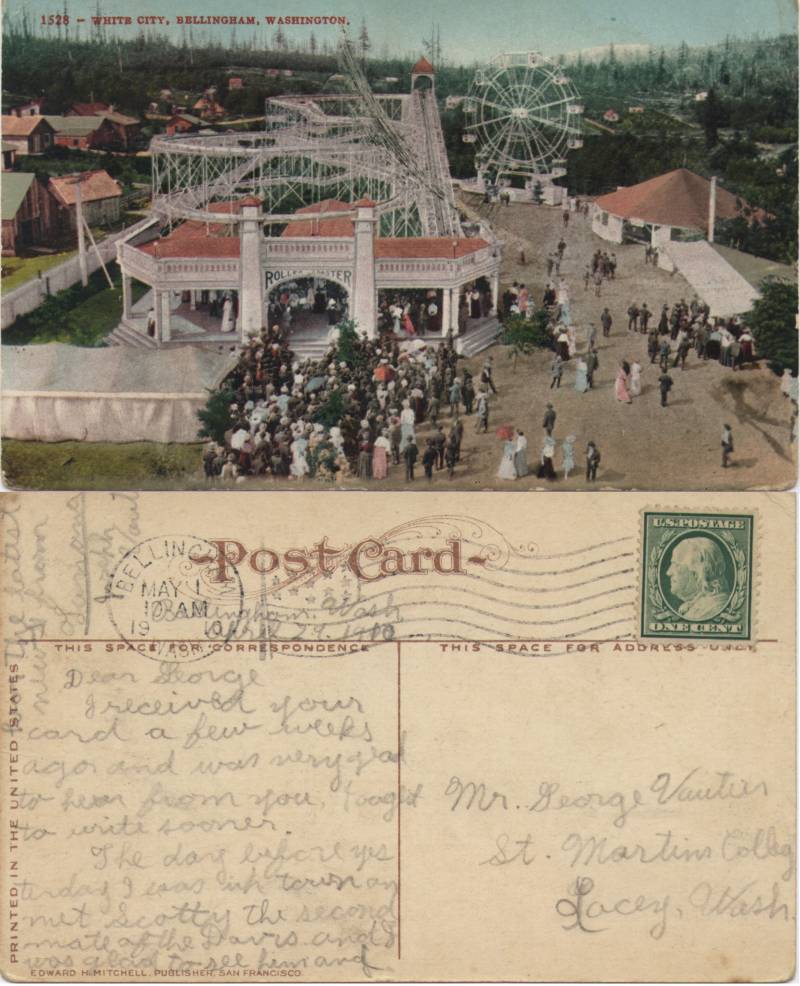 1528 - WHITE CITY, BELLINGHAM, WASHINGTON.
ROLLER COASTER
Post Card
BELLINGHAM
MAY 1
10 AM
1910
WASH.
U.S. POSTAGE
ONE CENT
Bellingham, Wash
April 29, 1910
THIS SPACE FOR CORRESPONDENCE
THIS SPACE FOR ADDRESS ONLY
Dear George
I received your
card a few weeks
ago and was very glad
to hear from you, I ought
to write sooner.
The day before yes
terday I was in town an
met Scotty the second
mate of the Davis and I
was glad to see him and
the latest
news from
Mr. George Vautier
St. Martins Colleg
Lacey, Wash.
PRINTED IN THE UNITED STATES
EDWARD H. MITCHELL, PUBLISHER, SAN FRANCISCO